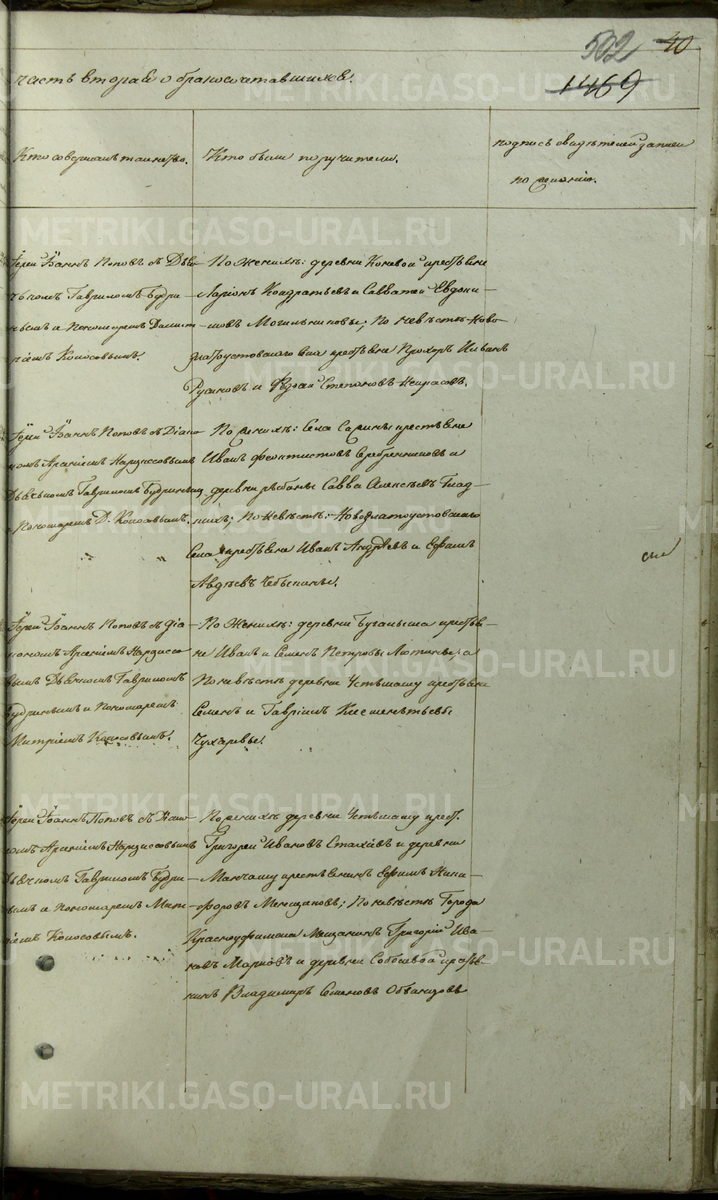 502 40
1469
часть вторая о бракосочетавшихся.
Кто совершалъ таинство.
Кто были поручители.
подпись свидѣтелей записи
по желанію.
Іерей Іоаннъ Поповъ съ Дья-
чкомъ Гавриломъ Будри-
нымъ и Пономаремъ
Колосовымъ.
По Женихѣ: деревни Коневой крестьяне
Ларіонъ Кондратьевъ и Савватей Евдоки-
мовъ Могильниковы; По невѣстѣ: Ново-
златоустовскаго села крестьяне Прохоръ Ивановъ
Русиновъ и Степановъ Некрасовъ.
Іерей Іоаннъ Поповъ съ Діако-
номъ Арсеніемъ Нарциссовымъ
Дьячкомъ Гавриломъ Будринымъ
и Пономаремъ Д. Колосовымъ.
По женихѣ: Села крестьяне
Иванъ Феоктистовъ Серебренниковъ и
деревни Савва Алексѣевъ Глад-
кихъ; По невѣстѣ: Новозлатоустовскаго
Села крестьяне Иванъ Андреевъ и Ефимъ
Авдѣевъ Чебыкины.
Іерей Іоаннъ Поповъ съ Діа-
кономъ Арсеніемъ Нарциссо-
вымъ Дьячкомъ Гавриломъ
Будринымъ и Пономаремъ
Митріемъ Колосовымъ.
По Женихѣ: деревни Бугалыша крестья-
не Иванъ и Семенъ Петровы
По невѣстѣ деревни Устьмашу крестьяне
Семенъ и Гаврилъ Клементьевы
Чухаревы.
Іерей Іоаннъ Поповъ съ Діако-
номъ Арсеніемъ Нарциссовымъ
Дьячкомъ Гавриломъ Будри-
нымъ и Пономаремъ Мит-
ріемъ Колосовымъ.
По женихѣ деревни Устьмашу крест.
Григорей Ивановъ Стахѣевъ и деревни
крестьянинъ Ефимъ Ники-
форовъ По невѣстѣ Города
Красноуфимска Мещанинъ Григорій Ива-
новъ Марковъ и деревни крестья-
нинъ Владимиръ Семеновъ
METRIKI.GASO-URAL.RU